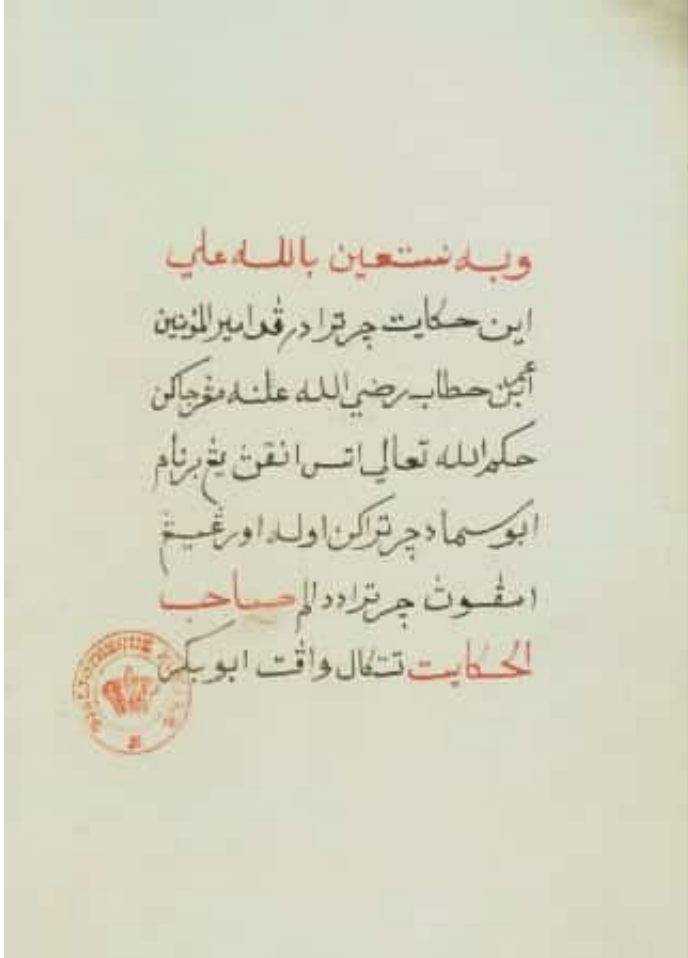 وبه نستعين بالله علي
اين حكايت چرترا درڤد امير المؤنين
عمر ابن حطاب رضي الله علنه مڠرجاكن
حكم الله تعالي اتس انقڽ يڠ برنام
ابو سماه دچرتراكن اوله اورڠيڠ
امڤوڽ چرترا ددالم صاحب
الحكايت تتكال واقت ابو بكر